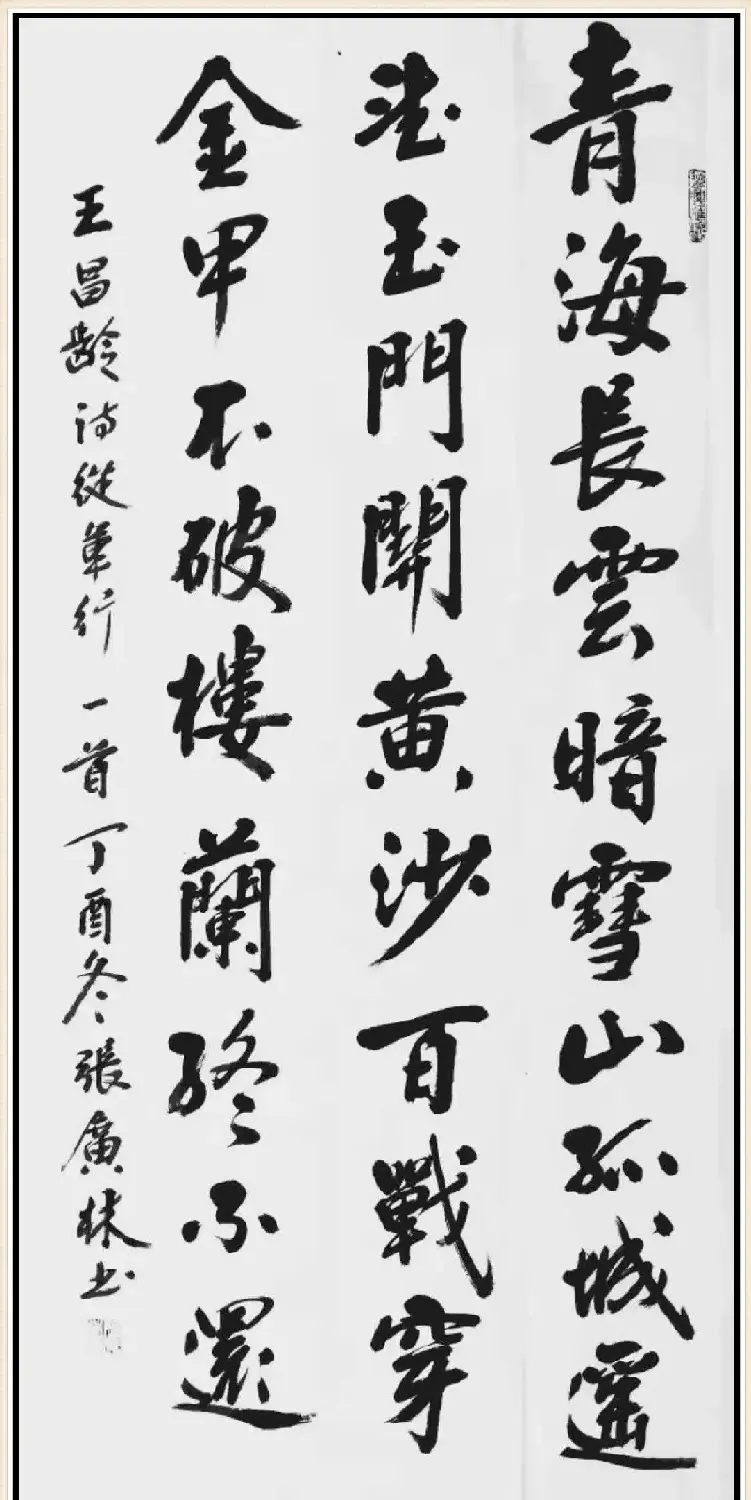 青海長雲暗雪山孤城遥
望玉門關黄沙百戰穿
金甲不破樓蘭終不還
王昌齡詩從軍行一首丁酉冬張廣林书